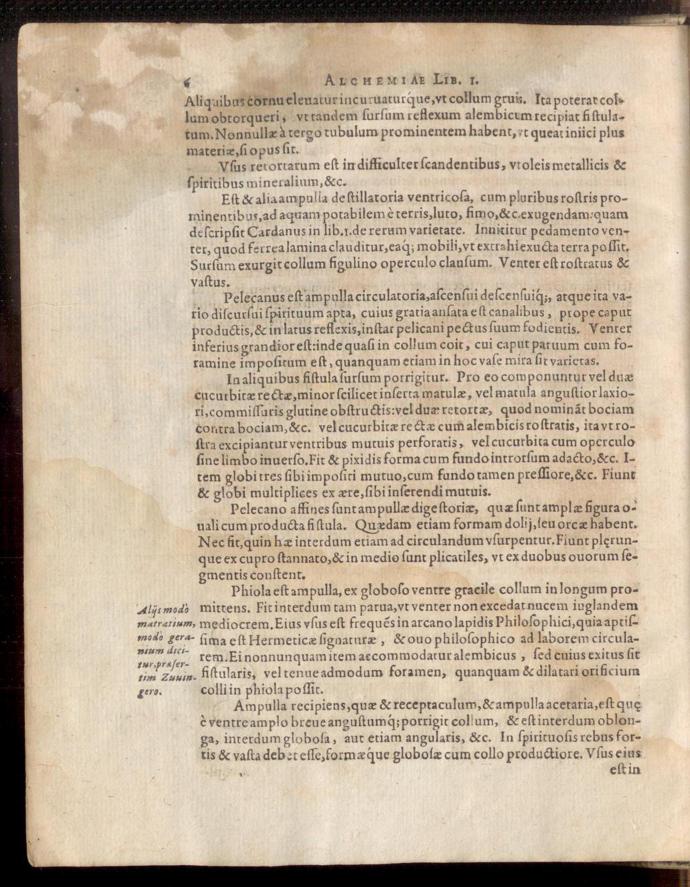 6 ALCHEMIAE LIB. I.
Aliquibus cornu eleuatur incuruaturq́ue, vt collum gruis. Ita poterat col-
lum obtorqueri, vt tandem sursum reflexum alembicum recipiat fistula-
tum. Nonnullæ à tergo tubulum prominentem habent, vt queat iniici plus
materiæ, si opus sit.
Vsus retortarum est in difficulter scandentibus, vt oleis metallicis &
spiritibus mineralium, &c.
Est & alia ampulla destillatoria ventricosa, cum pluribus rostris pro-
minentibus, ad aquam potabilem è terris, luto, fimo, &c. exugendam: quam
descripsit Cardanus in lib. 1. de rerum varietate. Innititur pedamento ven-
ter, quod ferrea lamina clauditur, eaq; mobili, vt extrahi exucta terra possit.
Sursum exurgit collum figulino operculo clausum. Venter est rostratus &
vastus.
Pelecanus est ampulla circulatoria, ascensui descensuiq́;, atque ita va-
rio discursui spirituum apta, cuius gratia ansata est canalibus, prope caput
productis, & in latus reflexis, instar pelicani pectus suum fodientis. Venter
inferius grandior est: inde quasi in collum coit, cui caput paruum cum fo-
ramine impositum est, quanquam etiam in hoc vase mira sit varietas.
In aliquibus fistula sursum porrigitur. Pro eo componuntur vel duæ
cucurbitæ rectæ, minor scilicet inserta matulæ, vel matula angustior laxio-
ri, commissuris glutine obstructis: vel duæ retortæ, quod nominãt bociam
contra bociam, &c. vel cucurbitæ rectæ cum alembicis rostratis, ita vt ro-
stra excipiantur ventribus mutuis perforatis, vel cucurbita cum operculo
sine limbo inuerso. Fit & pixidis forma cum fundo introrsum adacto, &c. I-
tem globi tres sibi impositi mutuo, cum fundo tamen pressiore, &c. Fiunt
& globi multiplices ex ære, sibi inserendi mutuis.
Pelecano affines sunt ampullæ digestoriæ, quæ sunt amplæ figura o-
uali cum producta fistula. Quædam etiam formam dolij, seu orcæ habent.
Nec fit, quin hæ interdum etiam ad circulandum vsurpentur. Fiunt plęrun-
que ex cupro stannato, & in medio sunt plicatiles, vt ex duobus ouorum se-
gmentis constent.
Phiola est ampulla, ex globoso ventre gracile collum in longum pro-
mittens. Fit interdum tam parua, vt venter non excedat nucem iuglandem
mediocrem. Eius vsus est frequẽs in arcano lapidis Philosophici, quia aptis-
sima est Hermeticæ signaturæ, & ouo philosophico ad laborem circula-
rem. Ei nonnunquam item accommodatur alembicus, sed cuius exitus sit
fistularis, vel tenue admodum foramen, quanquam & dilatari orificium
colli in phiola possit.
Alijs modò
matratium,
modò gera-
nium dici-
tur, præser-
tim Zuuin-
gero.
Ampulla recipiens, quæ & receptaculum, & ampulla acetaria, est quę
è ventre amplo breue angustumq́; porrigit collum, & est interdum oblon-
ga, interdum globosa, aut etiam angularis, &c. In spirituosis rebus for-
tis & vasta debet esse, formæque globosæ cum collo productiore. Vsus eius
est in